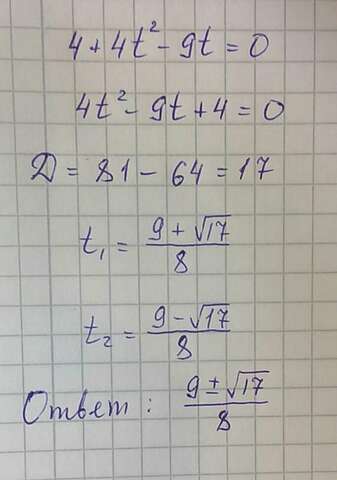 4 + 4t² - 9t = 0
4t² - 9t + 4 = 0
D = 81 - 64 = 17
t₁ = (9 + √17)/8
t₂ = (9 - √17)/8
Ответ: (9 ± √17)/8